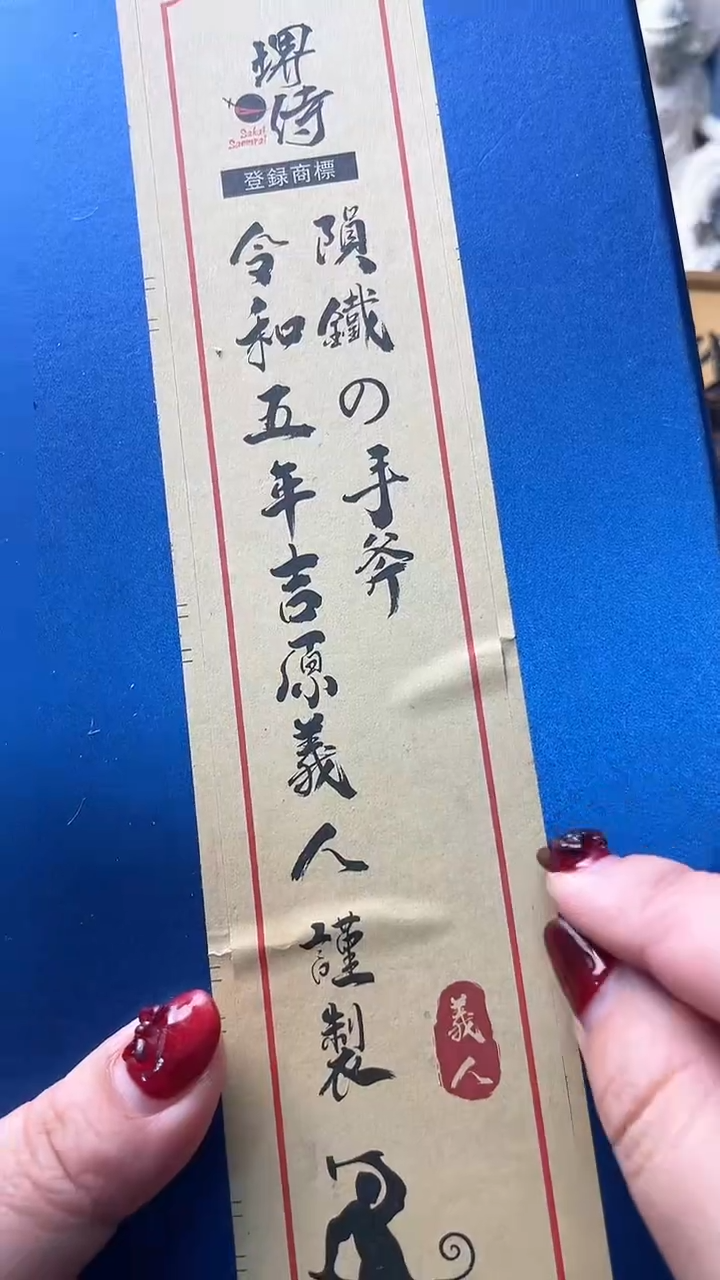 堺侍
Sakai
Samurai
登録商標
隕鐵の手斧
令和五年吉原義人謹製
義人